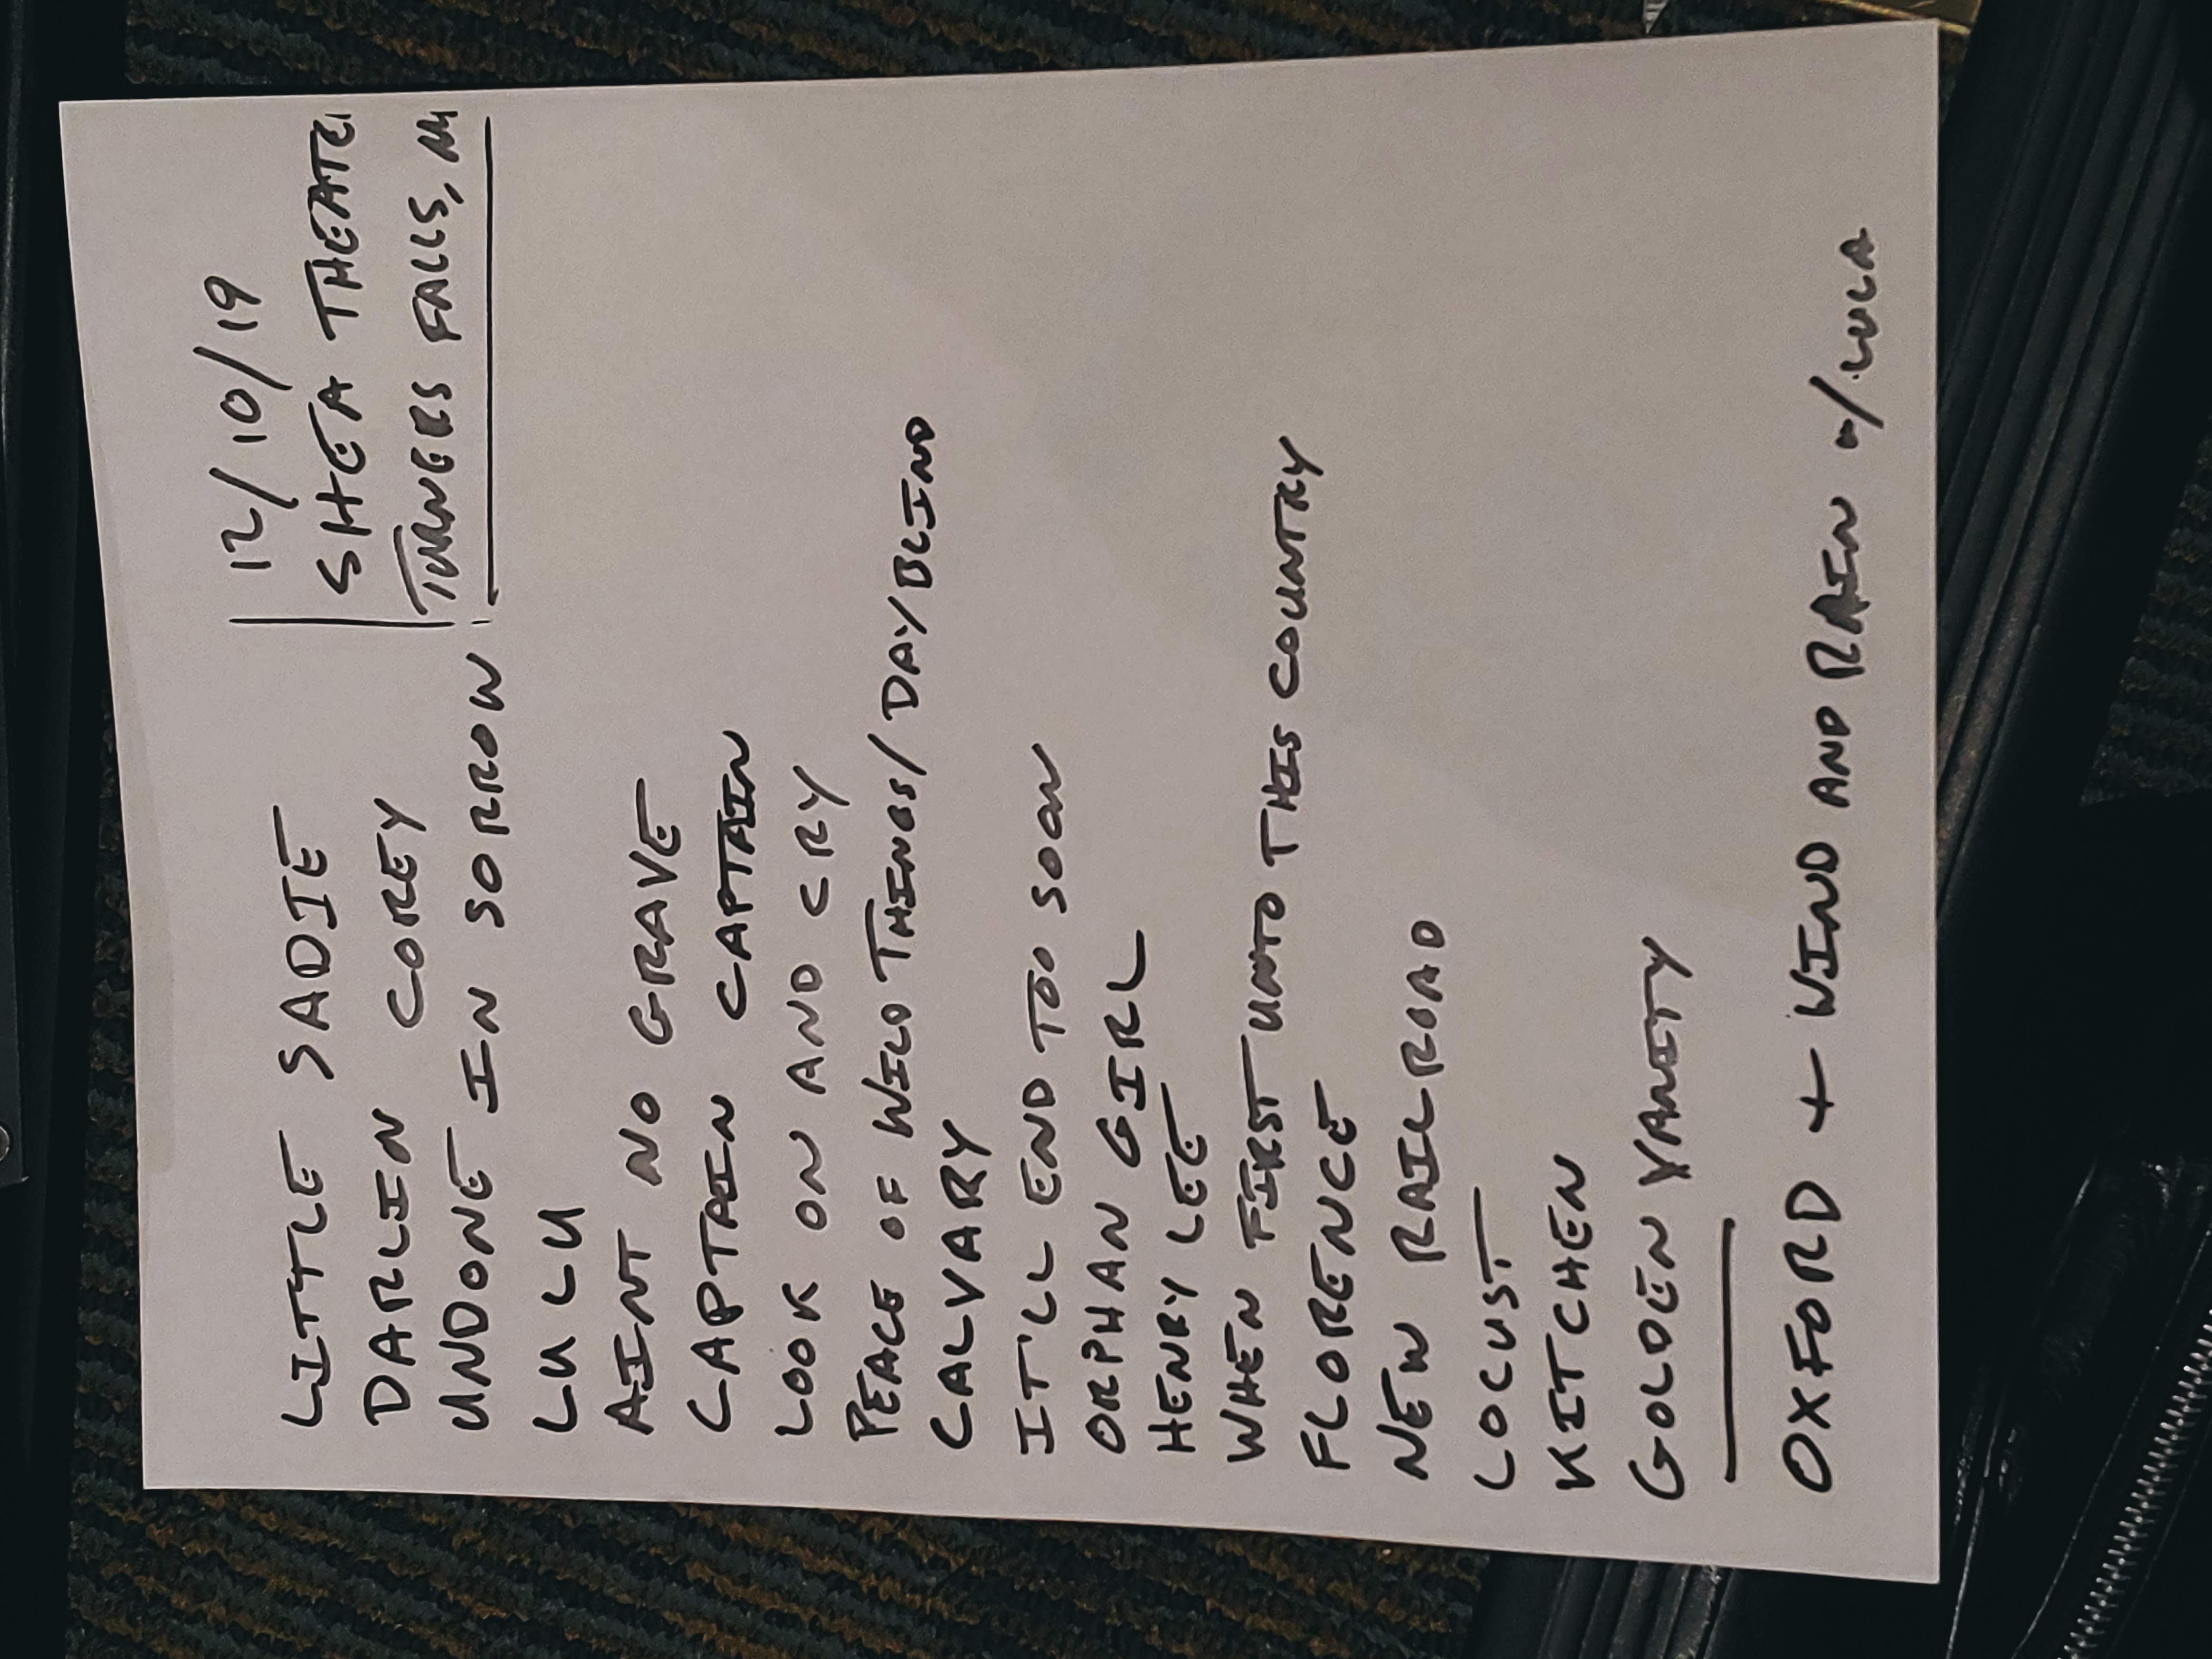 12/10/19
SHEA THEATE
TURNERS FALLS, M
LITTLE SADIE
DARLIN COREY
UNDONE IN SORROW
LULU
AINT NO GRAVE
CAPTAIN CAPTAIN
LOOK ON AND CRY
PEACE OF WILD THINGS/DAYBLIND
CALVARY
IT'LL END TOO SOON
ORPHAN GIRL
HENRY LEE
WHEN FIRST UNTO THIS COUNTRY
FLORENCE
NEW RAILROAD
LOCUST
KITCHEN
GOLDEN VANITY
OXFORD + WIND AND RAIN w/LULA